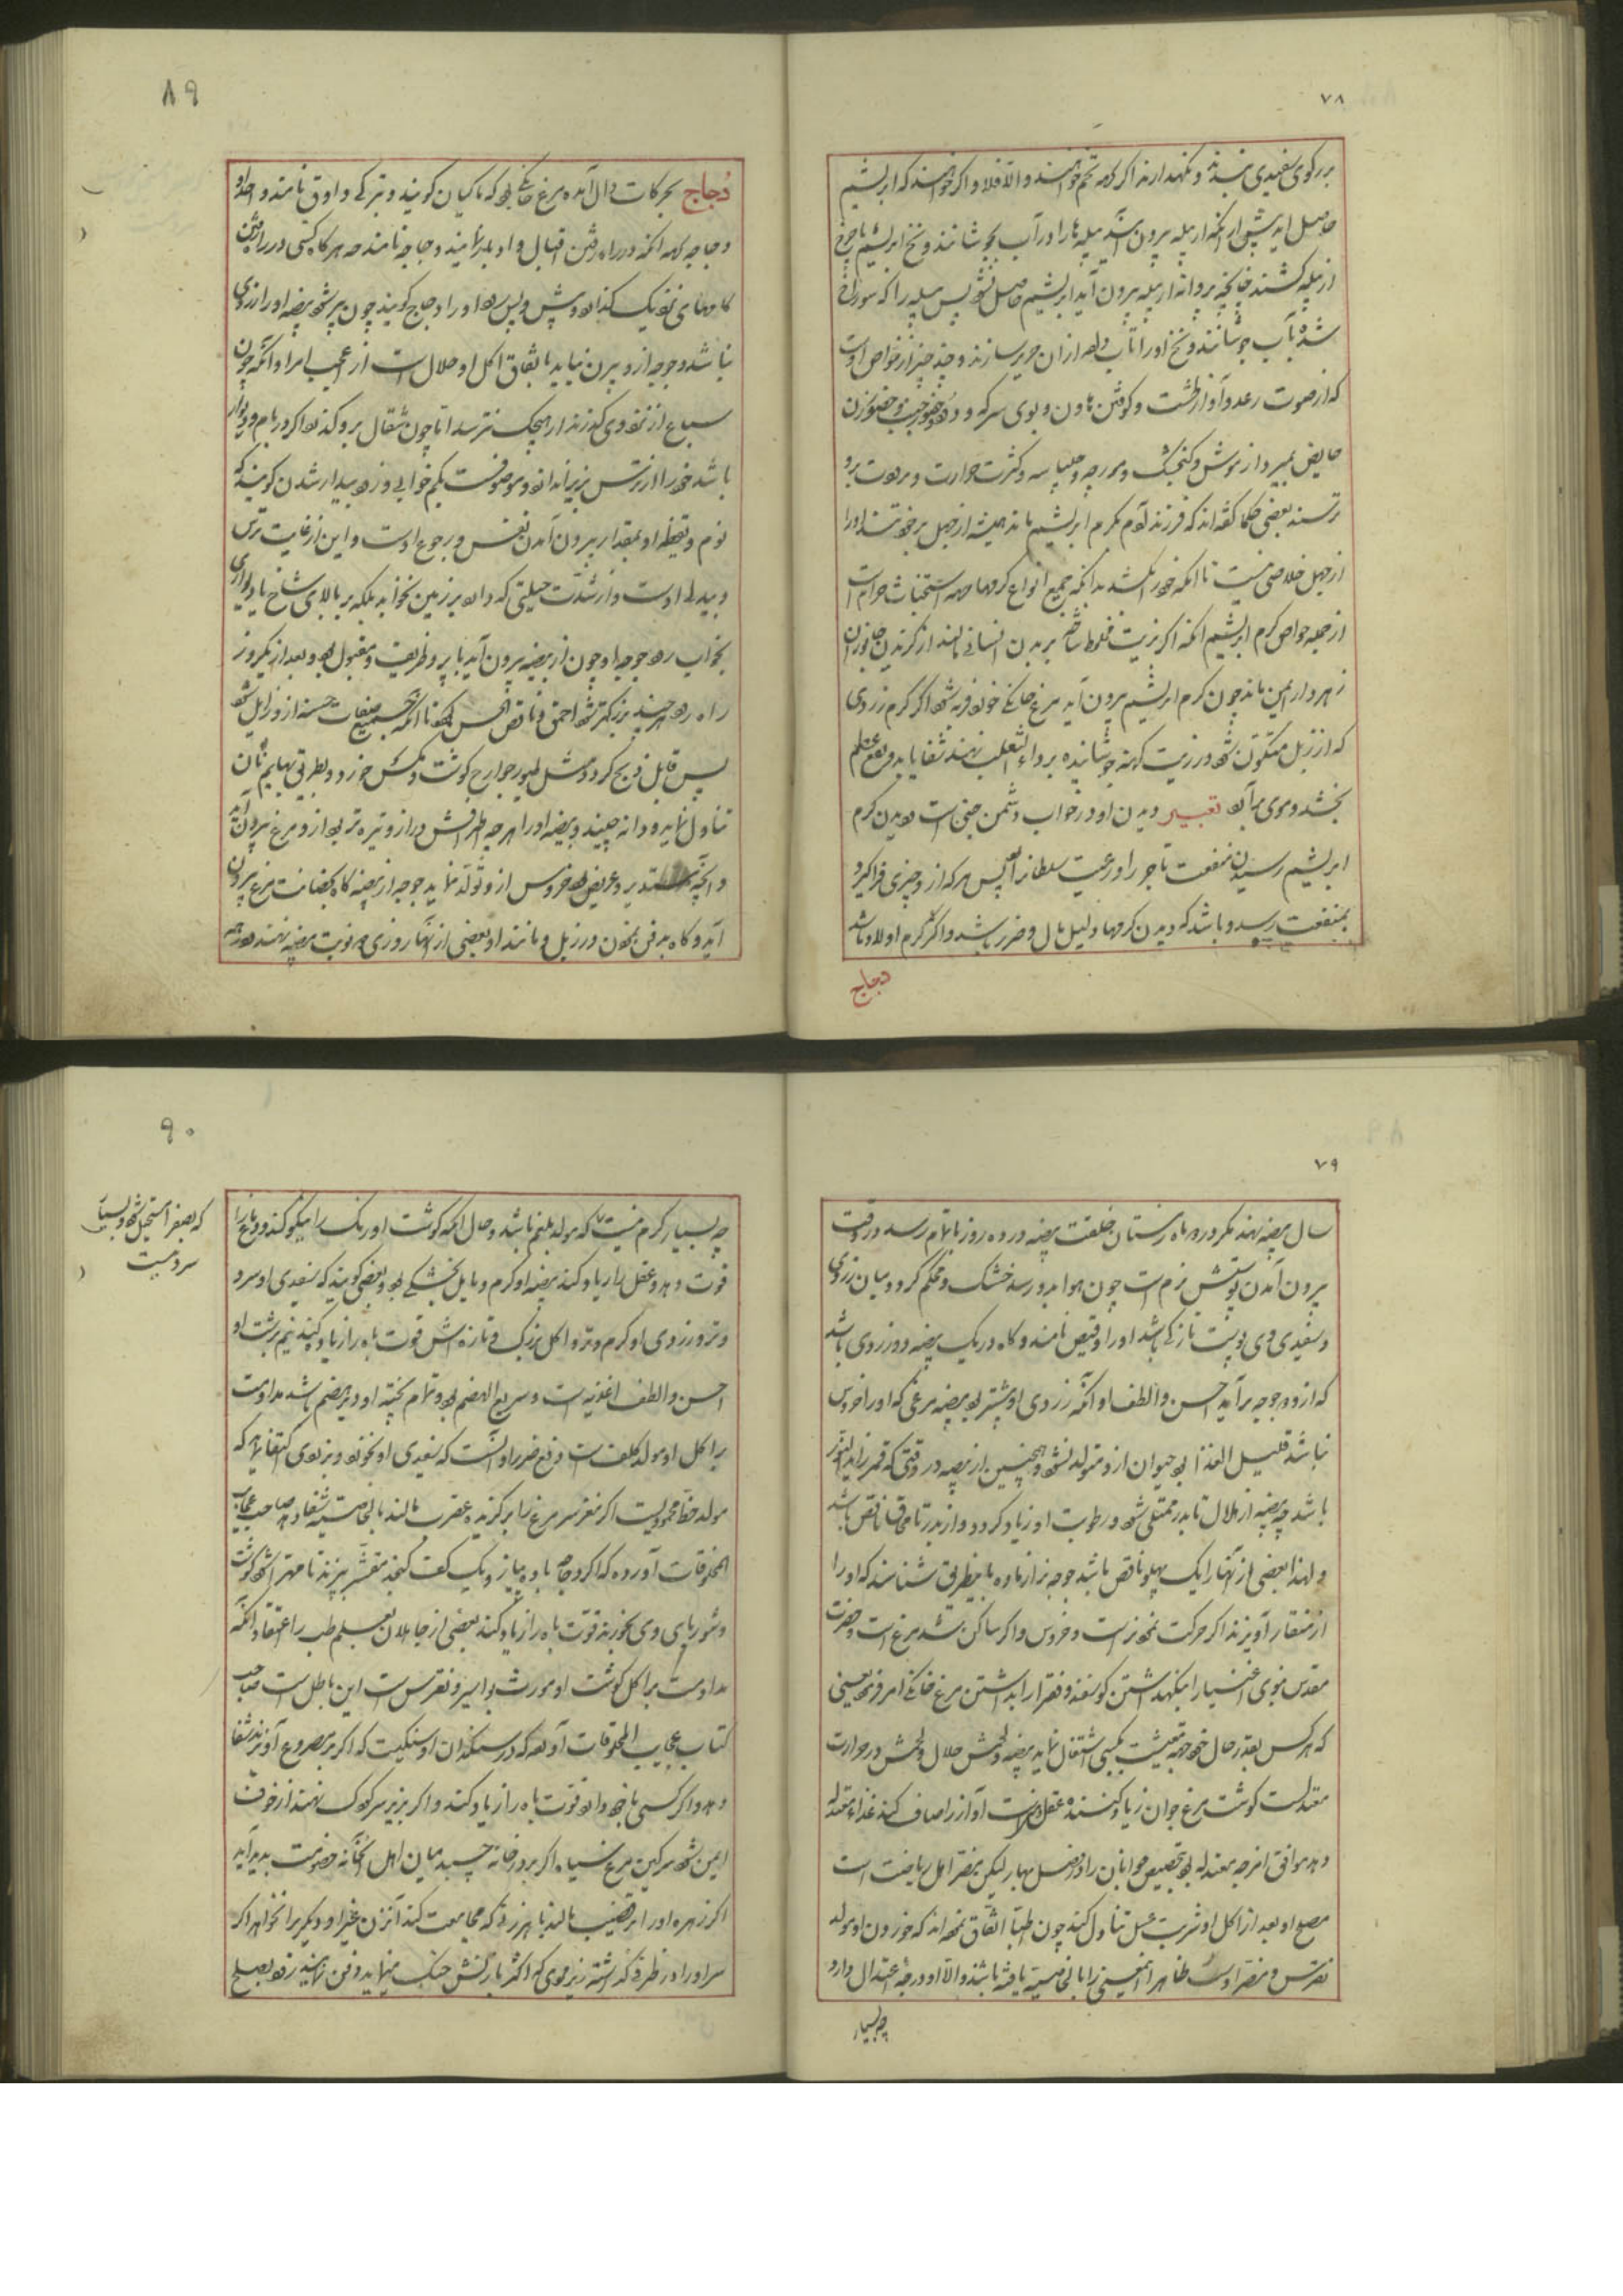 ۷۸
بر رکوی سفیدی نهند و نگهدارند اگر کرم تخم خواهند والا فلا و اگر خواهند که ابریشم
حاصل آید پیش از آنکه از پیله بیرون آیند پیله‌ها را در آب بجوشانند و نخ ابریشم با چرخ
از پیله کشند چنانچه پروانه از پیله بیرون آید ابریشم حاصل نشود پس پیله را که سوراخ
شده بآب جوشانند و نخ او را تاب داده از آن حریر سازند و چند چیز از خواص اوست
که از صوت رعد و آواز طشت و کوفتن هاون و بوی سرکه و دود و حضور جنب و حضور زن
حایض بمیرد و از موش و کنجشک و مورچه و چلپاسه و کثرت حرارت و برودت برو
ترسند بعضی حکما گفته‌اند که فرزند آدم بکرم ابریشم ماند همیشه از جهل بر خود تند او را
از جهل خلاصی نیست تا آنکه خود را بکشد بدانکه جمیع انواع کرمها جهة استخباث حرام است
از جمله خواص کرم ابریشم آنکه اگر بزیت مخلوط ساخته بر بدن انسانی مالند از گزیدن جانوران
زهردار ایمن ماند چون کرم ابریشم بیرون آید مرغ خانگی خورد فربه شود اگر کرم زردی
که از زبل متکون شود در زیت کهنه جوشانیده بر داء الثعلب نهند شفا یابد و نفع عظیم
بخشد و موی برآید تعبیر دیدن او در خواب دشمن خفی است دیدن کرم
ابریشم رسیدن منفعت تاجر را و رعیت سلطانرا پس هر که از او چیزی فراگیرد
بمنفعت رسد و باشد که دیدن کرمها دلیل مال و ضرر باشد و اگر کرم اولاد باشد
دجاج
۸۹
دُجاج بحرکات دال آمده مرغ خانگی بود که ماکیان گویند و بترکی داوق نامند و احد او
دجاجه جهة آنکه در راه رفتن اقبال و ادبار نمایند دجاجه نامند چه هرگاه کسی در راه رفتن
گامهای نزدیک گذارد و پیش و پس رود او را دجاج گویند چون پیر شود بیضه او را زردی
نباشد و جوجه از و بیرون نیاید باتفاق اکل او حلال است از عجایب امر او آنکه چون
سباع از نزد وی گذرند از هیچیک نترسد اما چون شغال برو گذرد اگر در بام و دیوار
باشد خود را از ترس بزیر اندازد و موصوفست بکم خوابی و زود بیدار شدن گویند که
نوم و یقظهٔ او بمقدار بیرون آمدن نفس و رجوع اوست و این از غایت ترس
و بیدلی اوست و از شدت حیلتی که دارد بر زمین نخوابد بلکه بر بالای شاخ یا دیواری
بخواب رود جوجهٔ او چون از بیضه بیرون آید با پر و ظریف و مقبول بود و بعد از یکروز
راه رود هر چند بزرگتر شود احمق و ناقص الحسن گردد تا آنکه جمیع صفات حسنه از و زایل شود
پس قابل ذبح گردد و مثل طیور جوارح گوشت و مگس خورد و بطریق بهایم نان
تناول نماید و دانه چیند و بیضه او را هر چه اطرافش دراز و تیره‌تر بود از و مرغ بیرون آید
و آنچه مستدیر و عریض بود خروس از و تولد نماید جوجه از بیضه گاه بحضانت مرغ بیرون
آید و گاه بدفن نمودن در زبل و مانند او بعضی از آنها روزی دو نوبت بیضه نهند در همه
۷۹
سال بیضه نهند مگر در دو ماه زمستان خلقت بیضه در ده روز باتمام رسد در وقت
بیرون آمدن پوستش نرم است چون هوا بدو رسد خشک و محکم گردد میان زردی
و سفیدی وی پوست نازکی باشد او را قیض نامند و گاه در یک بیضه دو زردی باشد
که از و دو جوجه برآید احسن و الطف او آنکه زردی او بیشتر بود بیضه مرغی که او را خروس
نباشد قلیل الغذا بود حیوان از و متولد نشود و همچنین از بیضه در وقتی که قمر زاید النور
باشد چه بیضه از هلال تا بدر ممتلی شود و رطوبت او زیاد گردد و از بدر تا محاق ناقص باشد
و لهذا بعضی از آنها را یک پهلو ناقص باشد جوجه نر از ماده باینطریق شناسند که او را
از منقار آویزند اگر حرکت نمود نر است و خروس و اگر ساکن شد مرغ است و حضرت
مقدس نبوی اغنیا را بنگهداشتن گوسفند و فقرا را بداشتن مرغ خانگی امر فرمود یعنی
که هر کس بقدر حال خود جهة معیشت بکسبی اشتغال نماید بیضه و لحمش حلال و لحمش در حرارت
معتدلست گوشت مرغ جوان زیاد کنندهٔ عقل و منی است آواز را صاف کند غذاء معتدل
دهد موافق امزجه معتدله بود بتخصیص جوانان را در فصل بهار لیکن مضر اهل ریاضت است
مصلح او بعد از اکل او شربت عسل تناول کنند چون اطبا اتفاق نموده‌اند که خوردن او مولد
نقرس و مضر اوست ظاهرا اینمعنی را بالخاصیة یافته باشند والا او در درجهٔ اعتدال دارد
چه بسیار
۹۰
چه بسیار گرم نیست که مولد بلغم باشد و حال آنکه گوشت او رنگ را نیکو کند و دماغ را
قوت دهد و عقل را زیاد کند بیضه او گرم و مایل بخشکی بود و بعضی گویند که سفیدی او سرد
و تر و زردی او گرم و تر و اکل بزرگ و تازه‌اش قوت باه را زیاد کند نیم برشت او
احسن و الطف اغذیه است و سریع الهضم بود و تمام پخته او دیر هضم باشد مداومت
بر اکل او مولد کلف است دفع ضرر او آنست که سفیدی او نخورد و بزردی اکتفا نماید که
مولد خلط محمودیست اگر مغز سر مرغ را بر گزیدهٔ عقرب مالند بالخاصیة شفا دهد صاحب عجایب
المخلوقات آورده که اگر دجاج با ده پیاز و یک کف کنجد مقشر بپزند تا مهرا شود گوشت
و شوربای وی بخورند قوت باه را زیاد کند بعضی از جاهلان بعلم طب را اعتقاد آنکه
مداومت بر اکل گوشت او مورث بواسیر و نقرس است این باطل است صاحب
کتاب عجایب المخلوقات آورده که در سنگدان او سنگیست که اگر بر مصروع آویزند شفا
دهد و اگر کسی با خود دارد قوت باه را زیاد کند و اگر بزیر سر کودک نهند از خوف
ایمن شود سرگین مرغ سیاه اگر بر در خانه چسبد میان اهل آنخانه خصومت پدید آید
اگر زهرهٔ او را بر قضیب مالند با هر زنی که مجامعت کند آن زن غیر او دیگری را نخواهد اگر
سر او را در ظرفی گذاشته زیر موی که اکثر باریش جنگ مینماید دفن نمایند زود بصلح
که بصفرا مستحیل شود و بسیار
سرد نیست